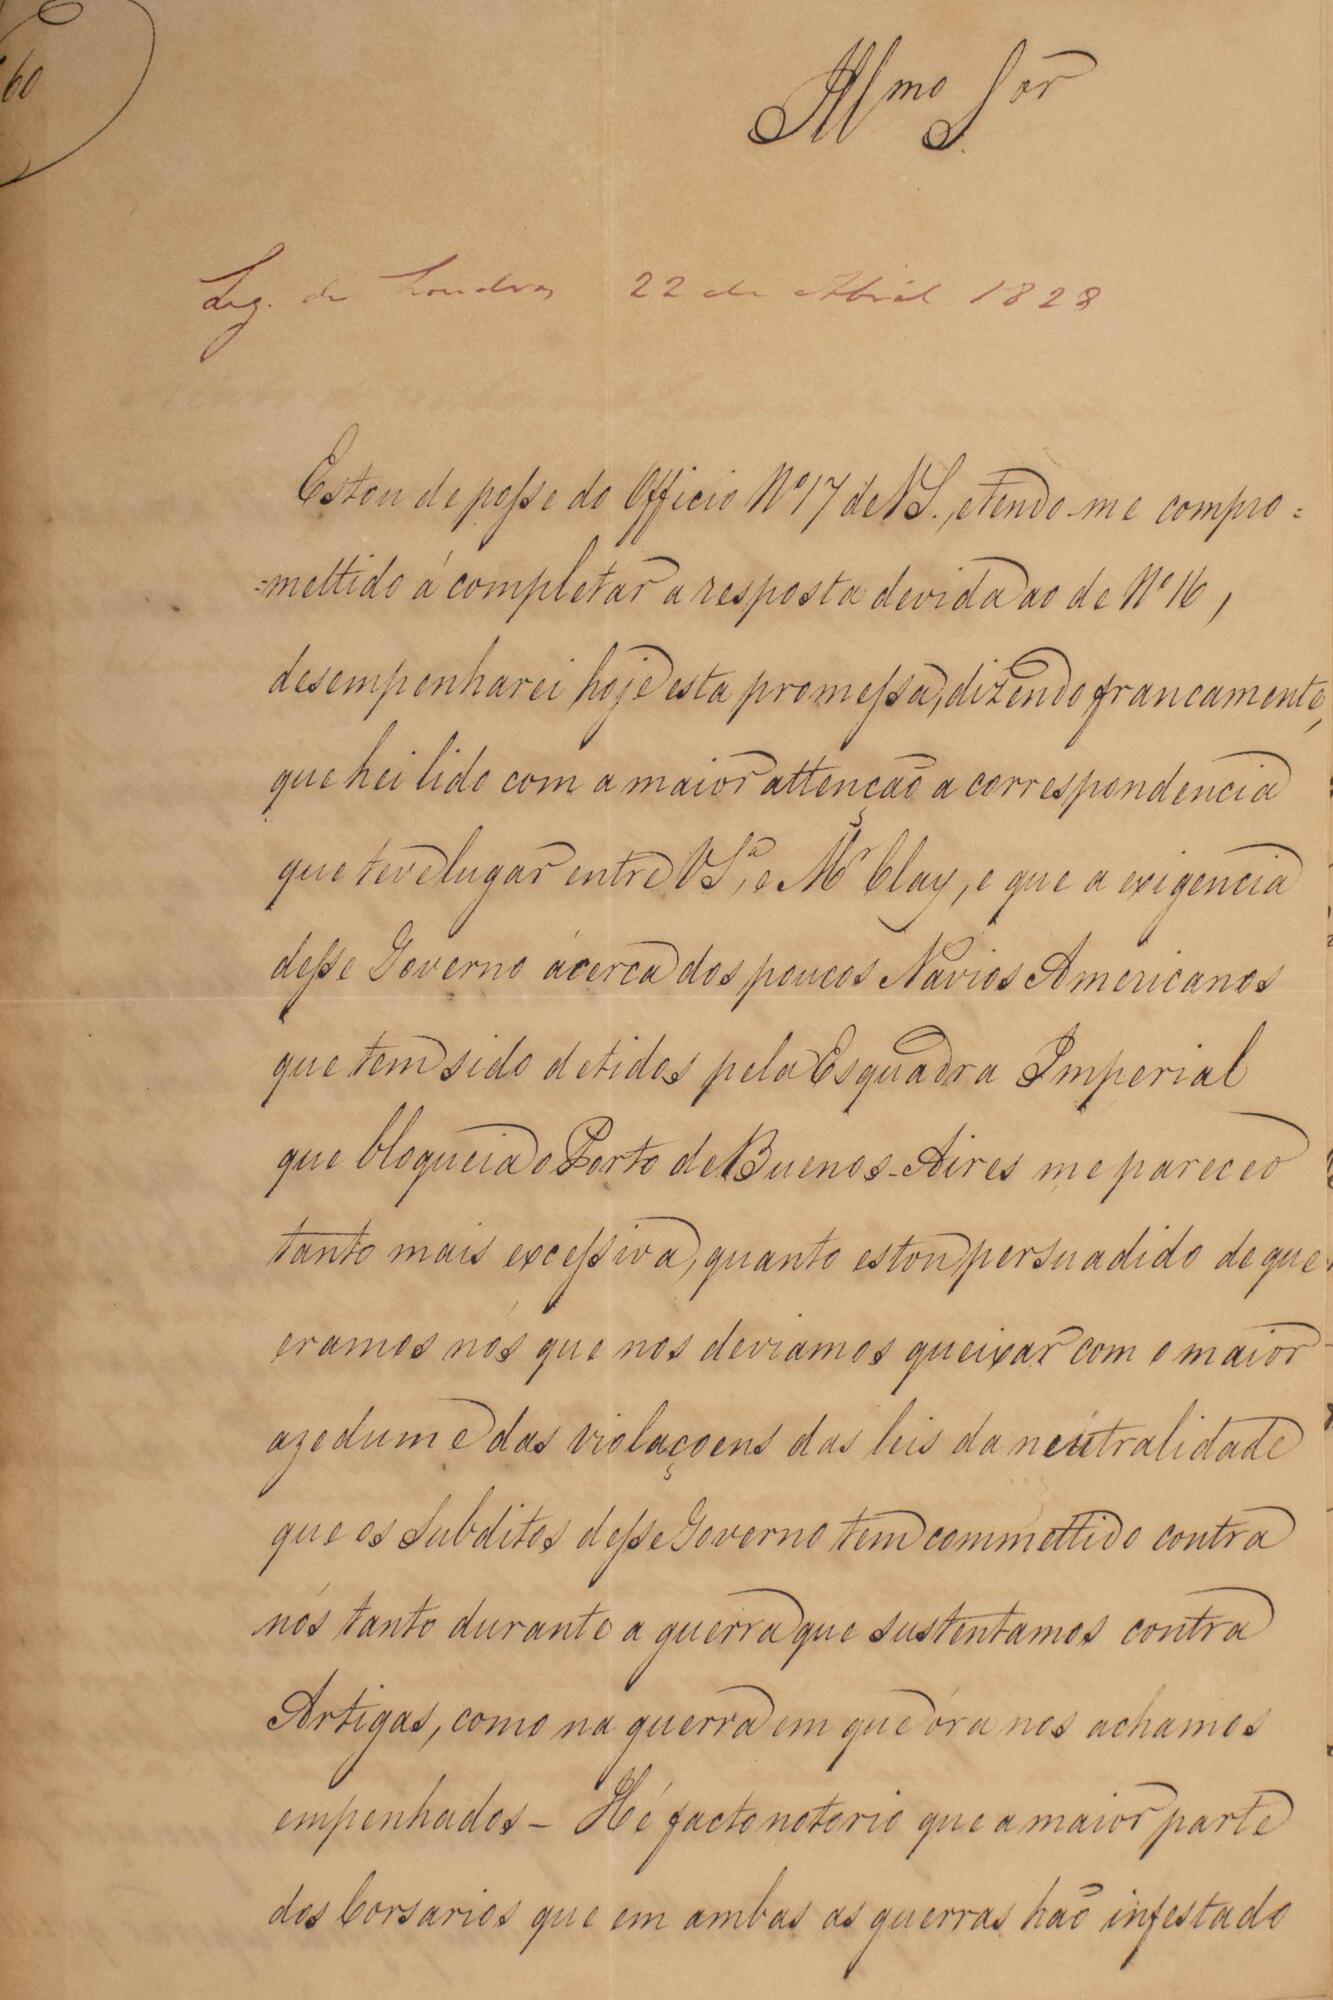 60
Illmo Sor
Leg. de Londres 22 de Abril 1828
Estou de posse do Officio Nº 17 de V.S., e tendo-me compro=
=mettido á completar a resposta devida ao de Nº 16,
desempenharei hoje esta promessa, dizendo francamente,
que hei lido com a maior attenção a correspondencia
que teve lugar entre V.Sª, e Mr Clay, e que a exigencia
desse Governo ácerca dos poucos Navios Americanos
que tem sido detidos pela Esquadra Imperial
que bloqueia o Porto de Buenos-Aires me pareceo
tanto mais excessiva, quanto estou persuadido de que
eramos nós que nos deviamos queixar com o maior
azedume das violaçoens das leis da neutralidade
que os Subditos desse Governo tem commettido contra
nós tanto durante a guerra que sustentamos contra
Artigas, como na guerra em que óra nos achamos
empenhados - Hé facto notorio que a maior parte
dos Corsarios que em ambas as guerras hão infestado